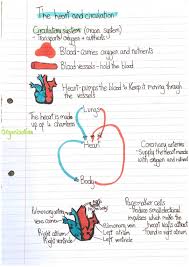 The heart and circulation
Circulatory system (organ system)
Transports oxygen + nutrients
Blood - carries oxygen and nutrients
Blood vessels - hold the blood
Heart - pumps the blood to keep it moving through
the vessels
Lungs
The heart is made
up of 4 chambers
Organisation
Heart
Coronary arteries
- Supply the heart muscle
with oxygen and nutrient
Body
Pacemaker cells
Produce small electrical
impulses which make the
heart walls contract
Pulmonary artery
Vena cava
Right atrium
Right ventricle
Aorta
Pulmonary vein
Left atrium
Left ventricle